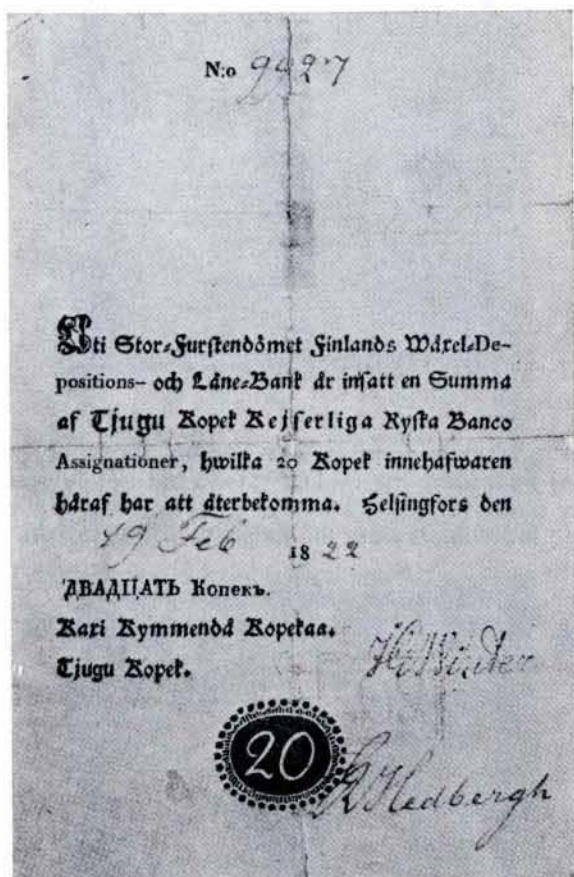 N:o 9927
Uti Stor-Furstendömet Finlands Wäxel-De-
positions- och Låne-Bank är insatt en Summa
af Tjugu Kopek Kejserliga Ryska Banco
Assignationer, hwilka 20 Kopek innehafwaren
häraf har att återbekomma. Helsingfors den
19 Feb 1822
ДВАДЦАТЬ Копекъ.
Kaxi Kymmendä Kopekaa.
Tjugu Kopek.
Winter
20
Hedbergh